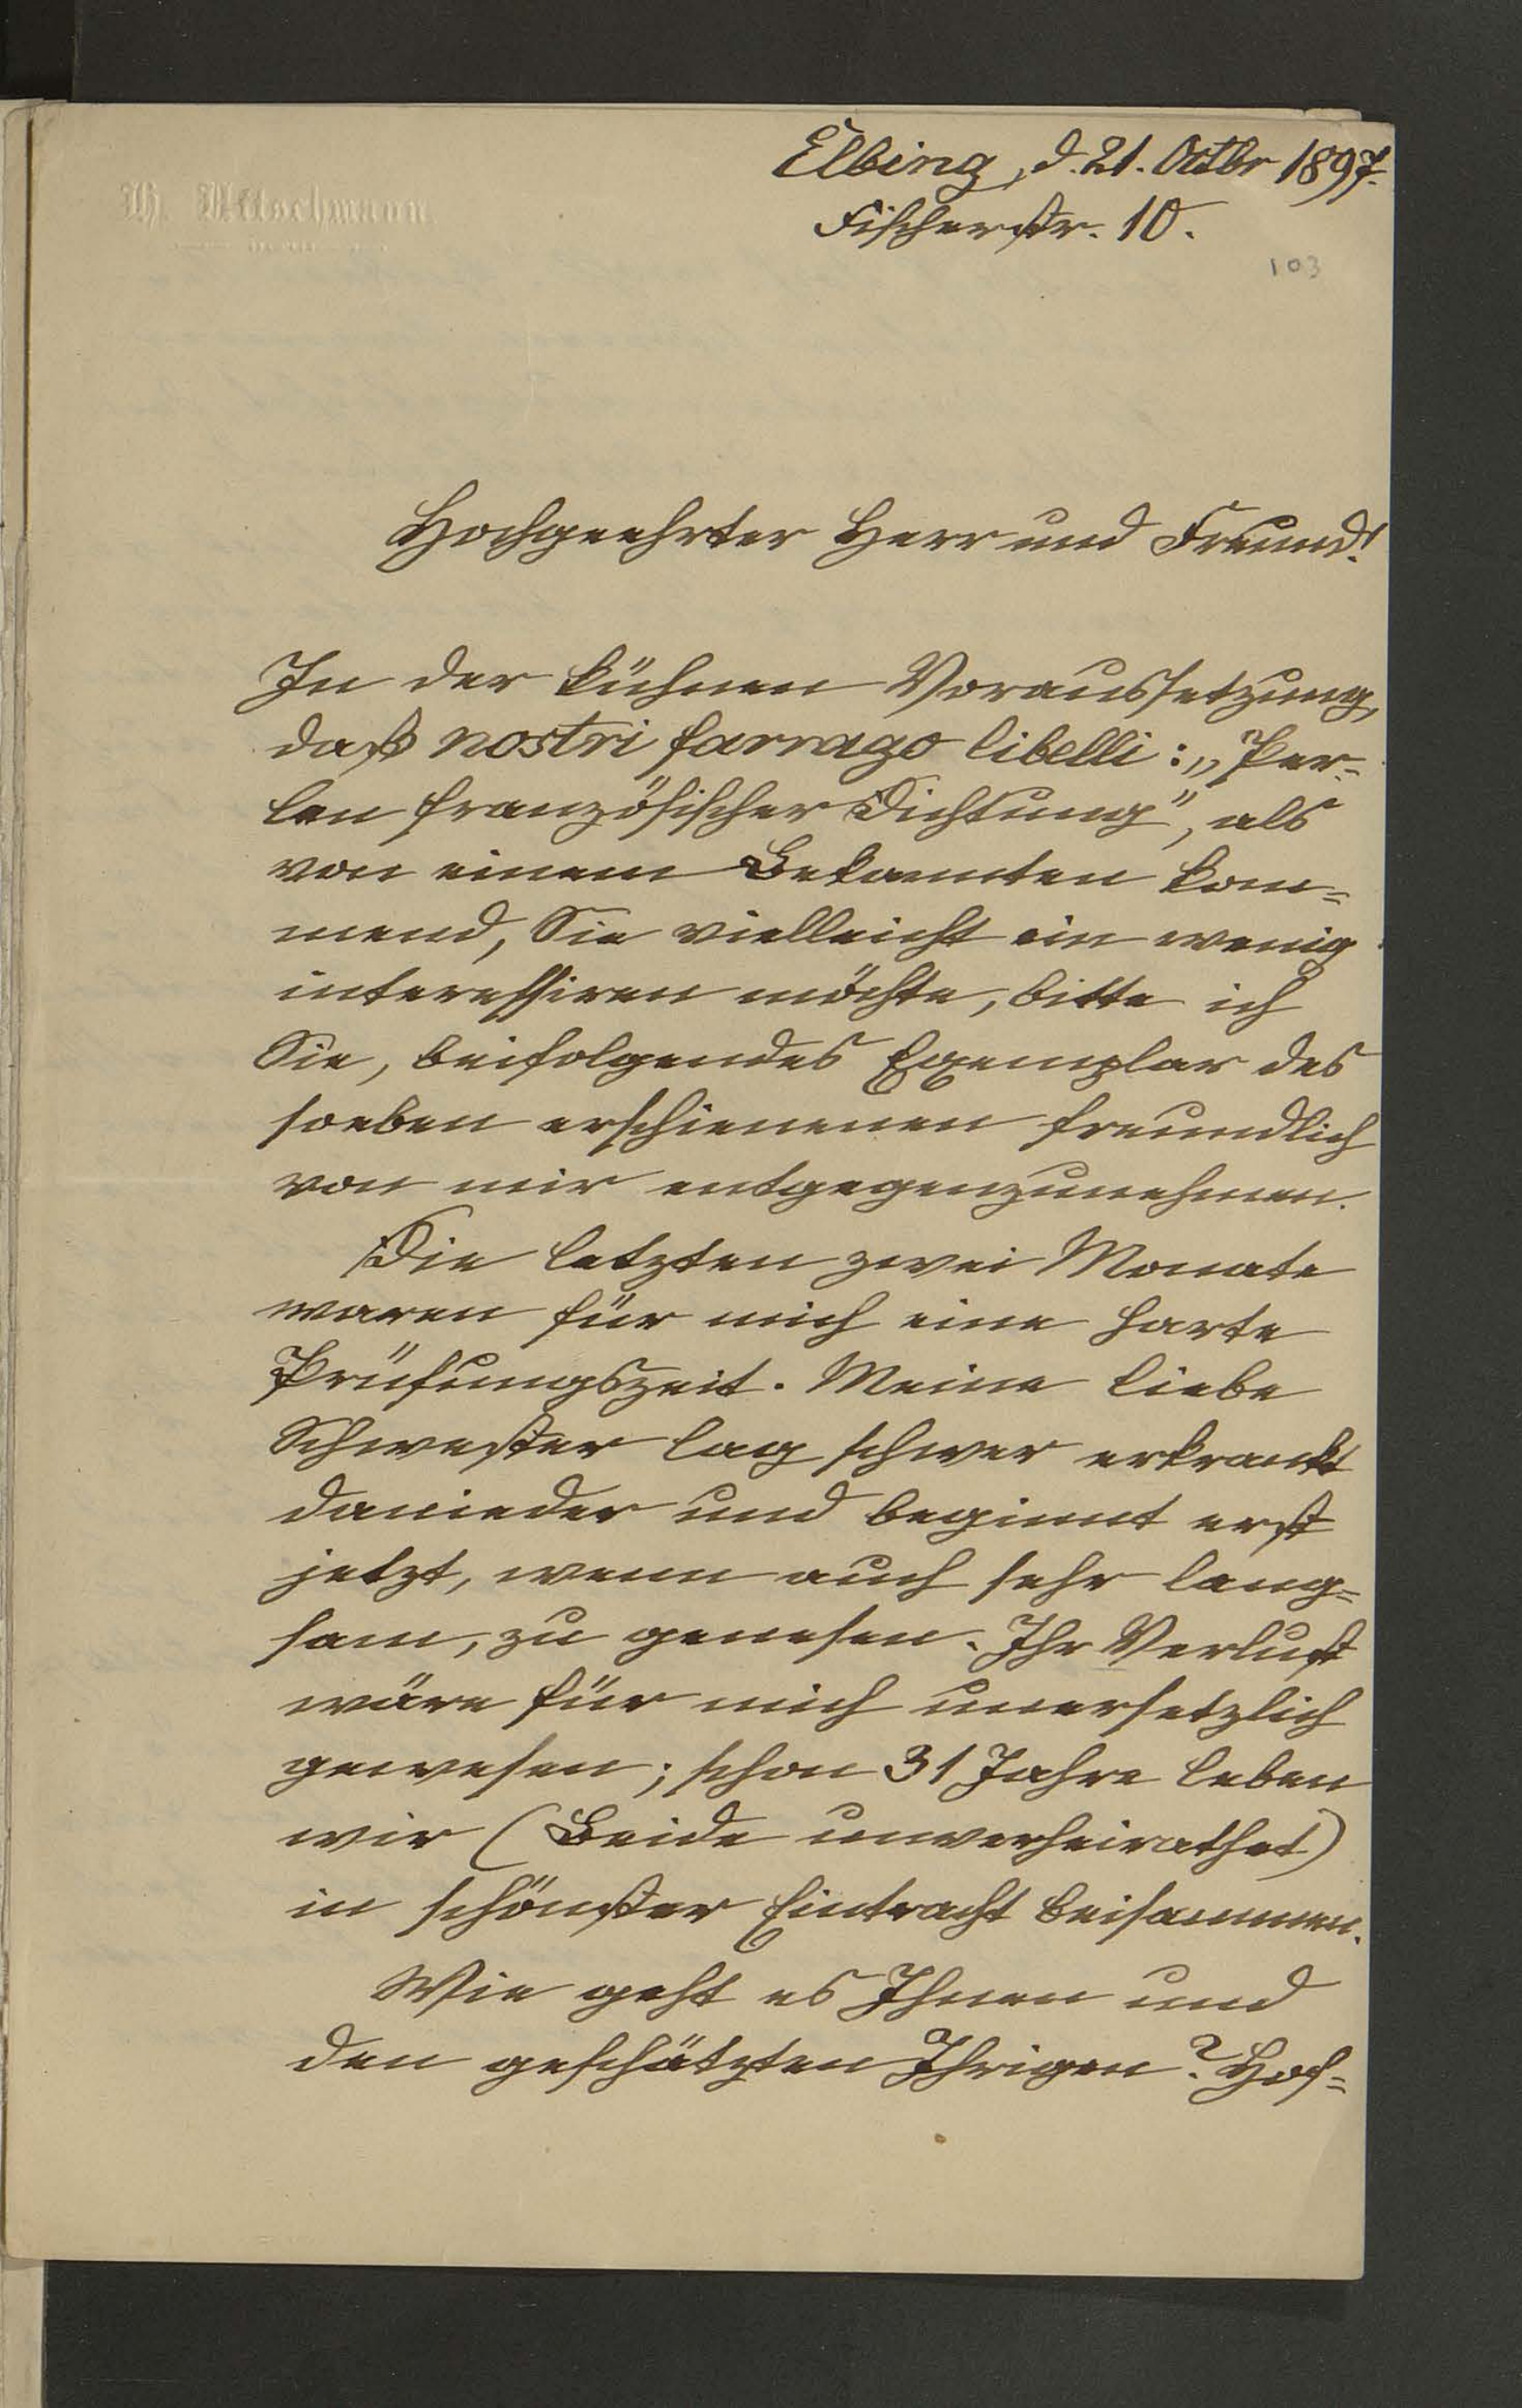 Elbing, d. 21. Octbr 1897.
Fischerstr. 10.
103
Hochgeehrter Herr und Freund!
In der kühnen Voraussetzung,
daß nostri farrago libelli: „Per-
len französischer Dichtung", als
von einem Bekannten kom-
mend, Sie vielleicht ein wenig
interessiren möchte, bitte ich
Sie, beifolgendes Exemplar des
soeben erschienenen freundlich
von mir entgegenzunehmen.
Die letzten zwei Monate
waren für mich eine harte
Prüfungszeit. Meine liebe
Schwester lag schwer erkrankt
danieder und beginnt erst
jetzt, wenn auch sehr lang-
sam, zu genesen. Ihr Verlust
wäre für mich unersetzlich
gewesen; schon 31 Jahre leben
wir (Beide unverheirathet)
in schönster Eintracht beisammen.
Wie geht es Ihnen und
den geschätzten Ihrigen? Hof-